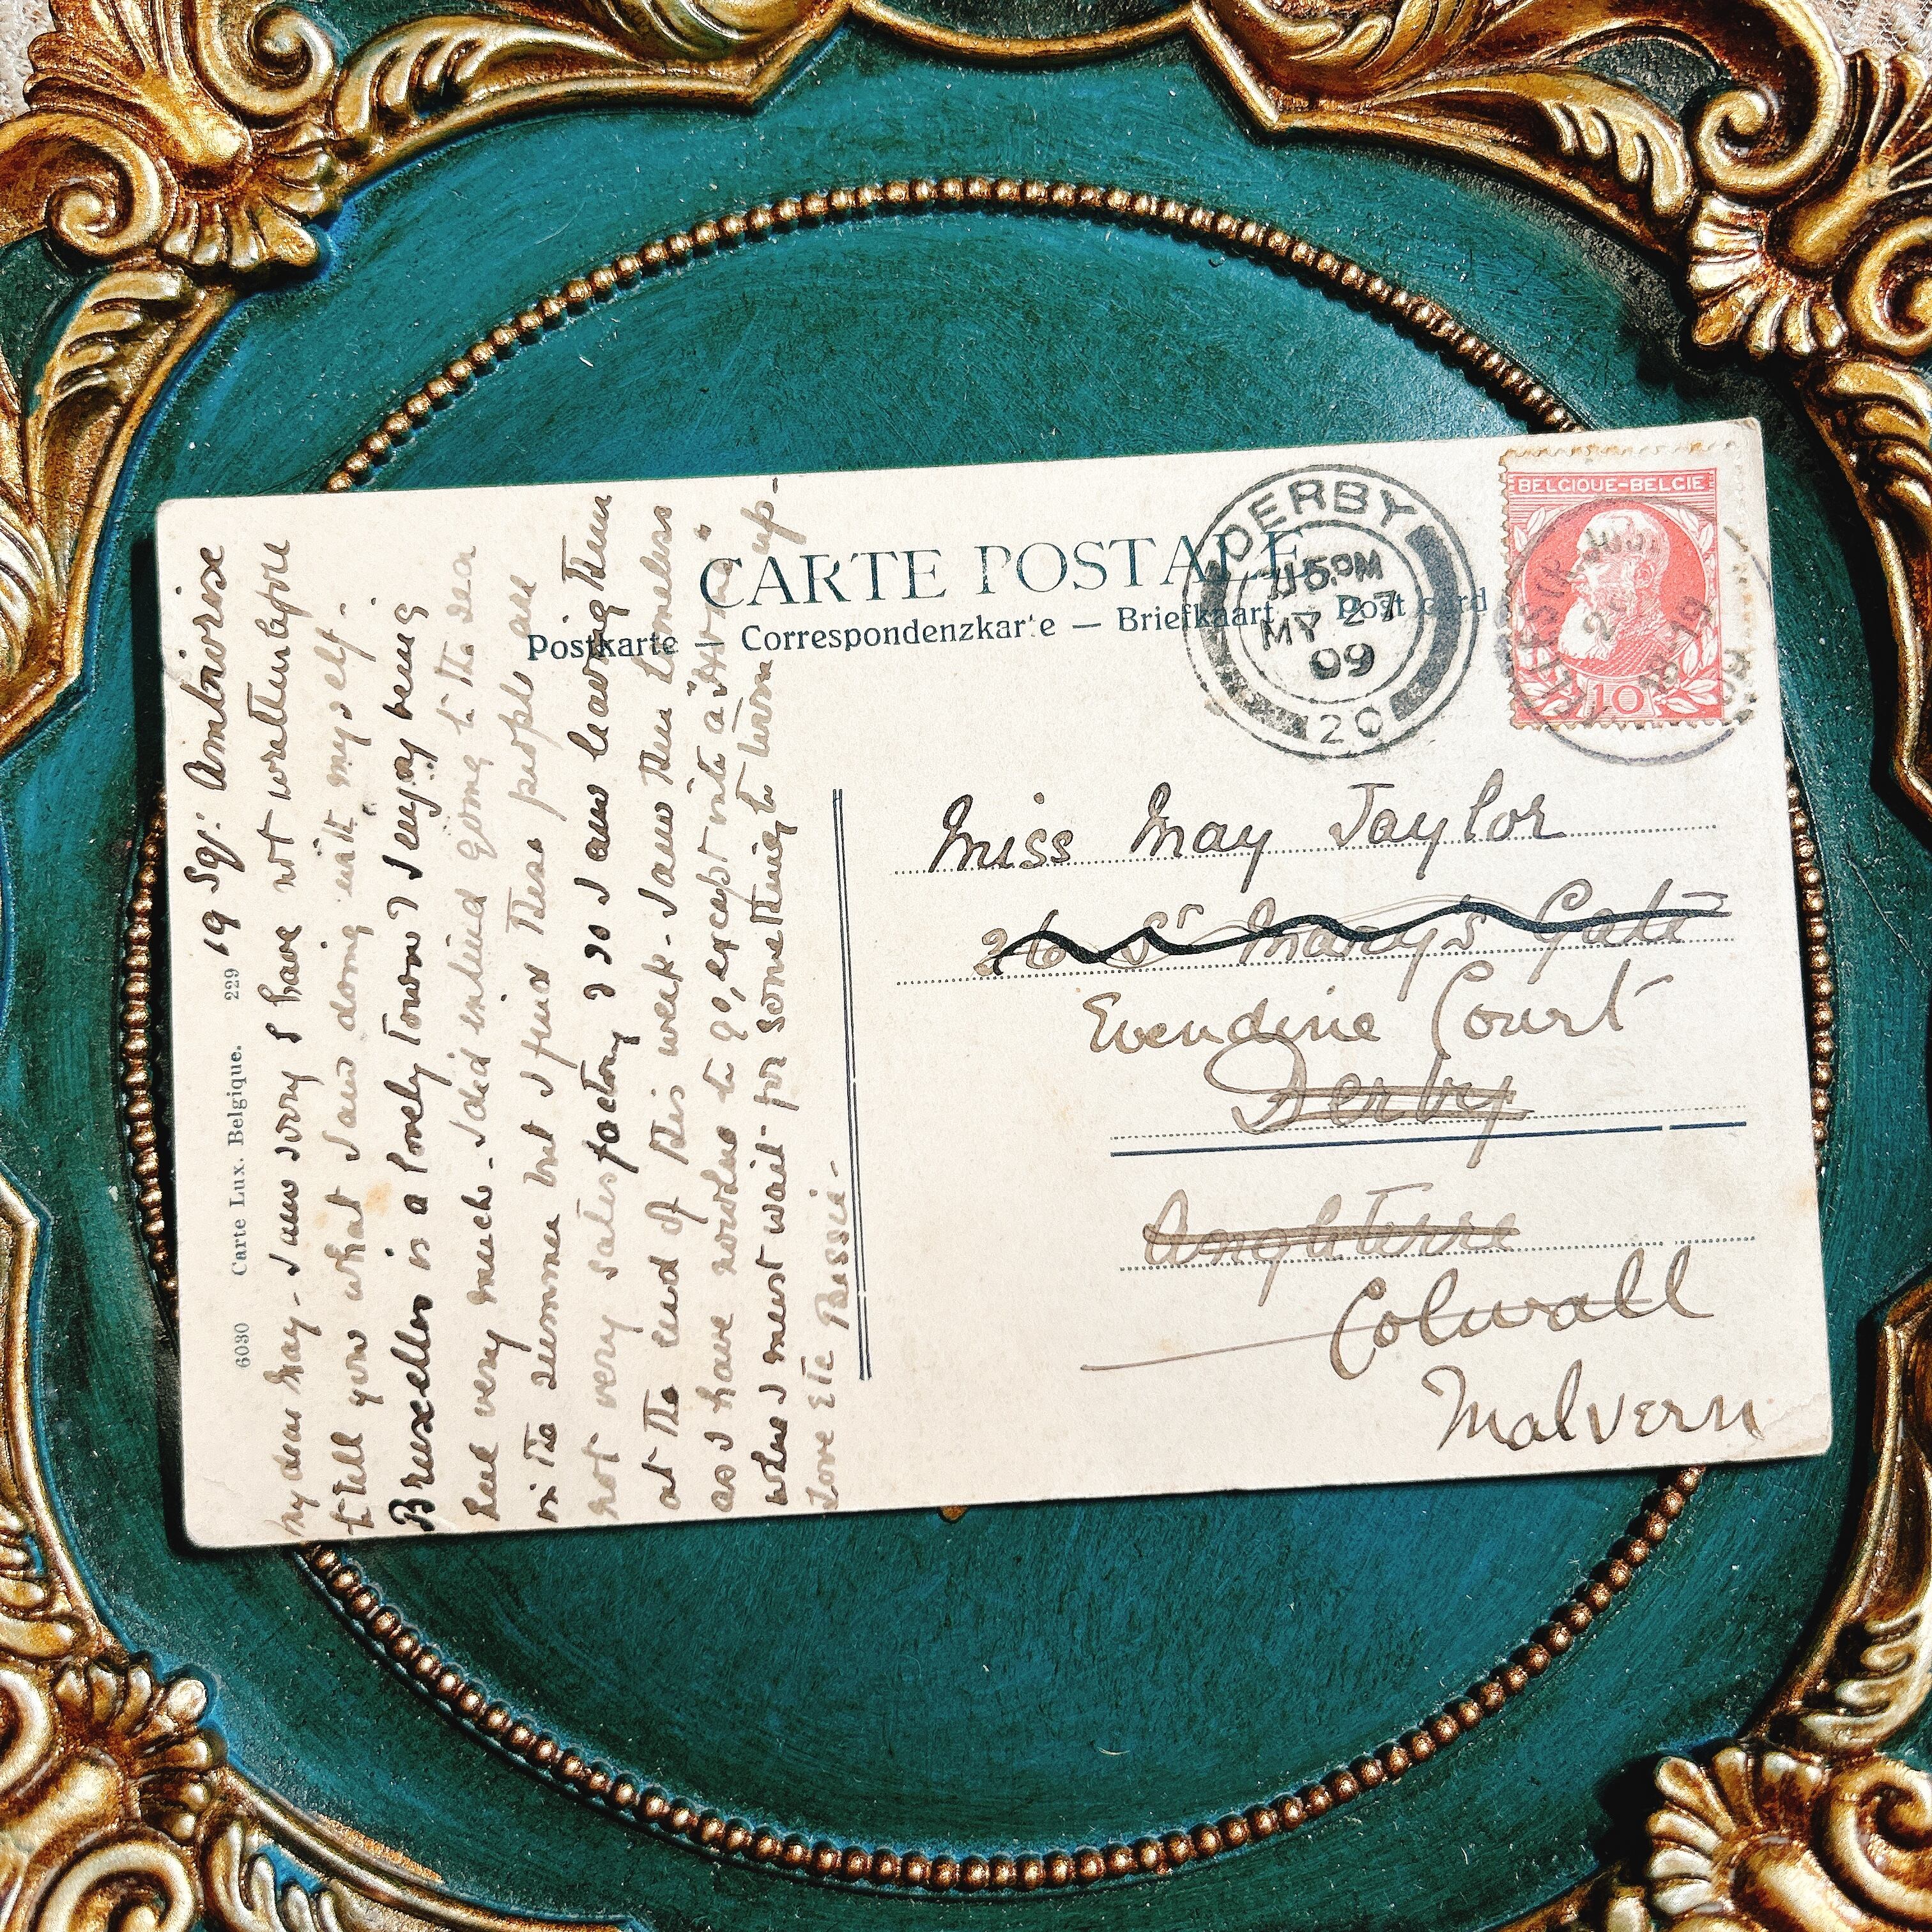 CARTE POSTALE
Postkarte — Correspondenzkarte — Briefkaart — Post card
6030 Carte Lux. Belgique. 229
19 Sq: Ambiorixe
My dear May - I am sorry I have not written before
to tell you what I am doing with myself.
Bruxelles is a lovely town & I enjoy being
here very much - I did intend going to the sea
in the summer but I find these people are
not very satisfactory & so I am leaving them
at the end of this week. I am then homeless
as I have nowhere to go, except into a
where I must wait for something to turn up -
Love etc Bessie -
DERBY
MY 27
09
20
BELGIQUE-BELGIE
10
18-19
09
Miss May Taylor
26 St Mary's Gate
Evendine Court
Derby
Angleterre
Colwall
Malvern